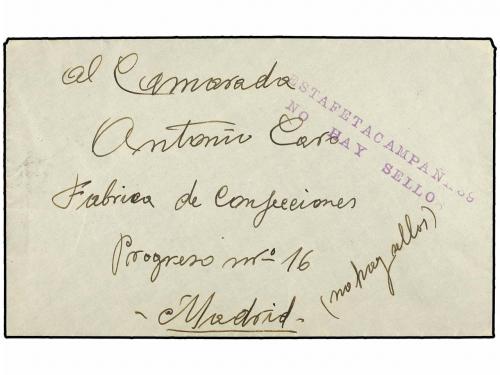 al Camarada
Antonio Caro
Fabrica de Confecciones
Progreso nº 16
- Madrid -
ESTAFETACAMPAÑA
NO HAY SELLOS
(no hay sellos)